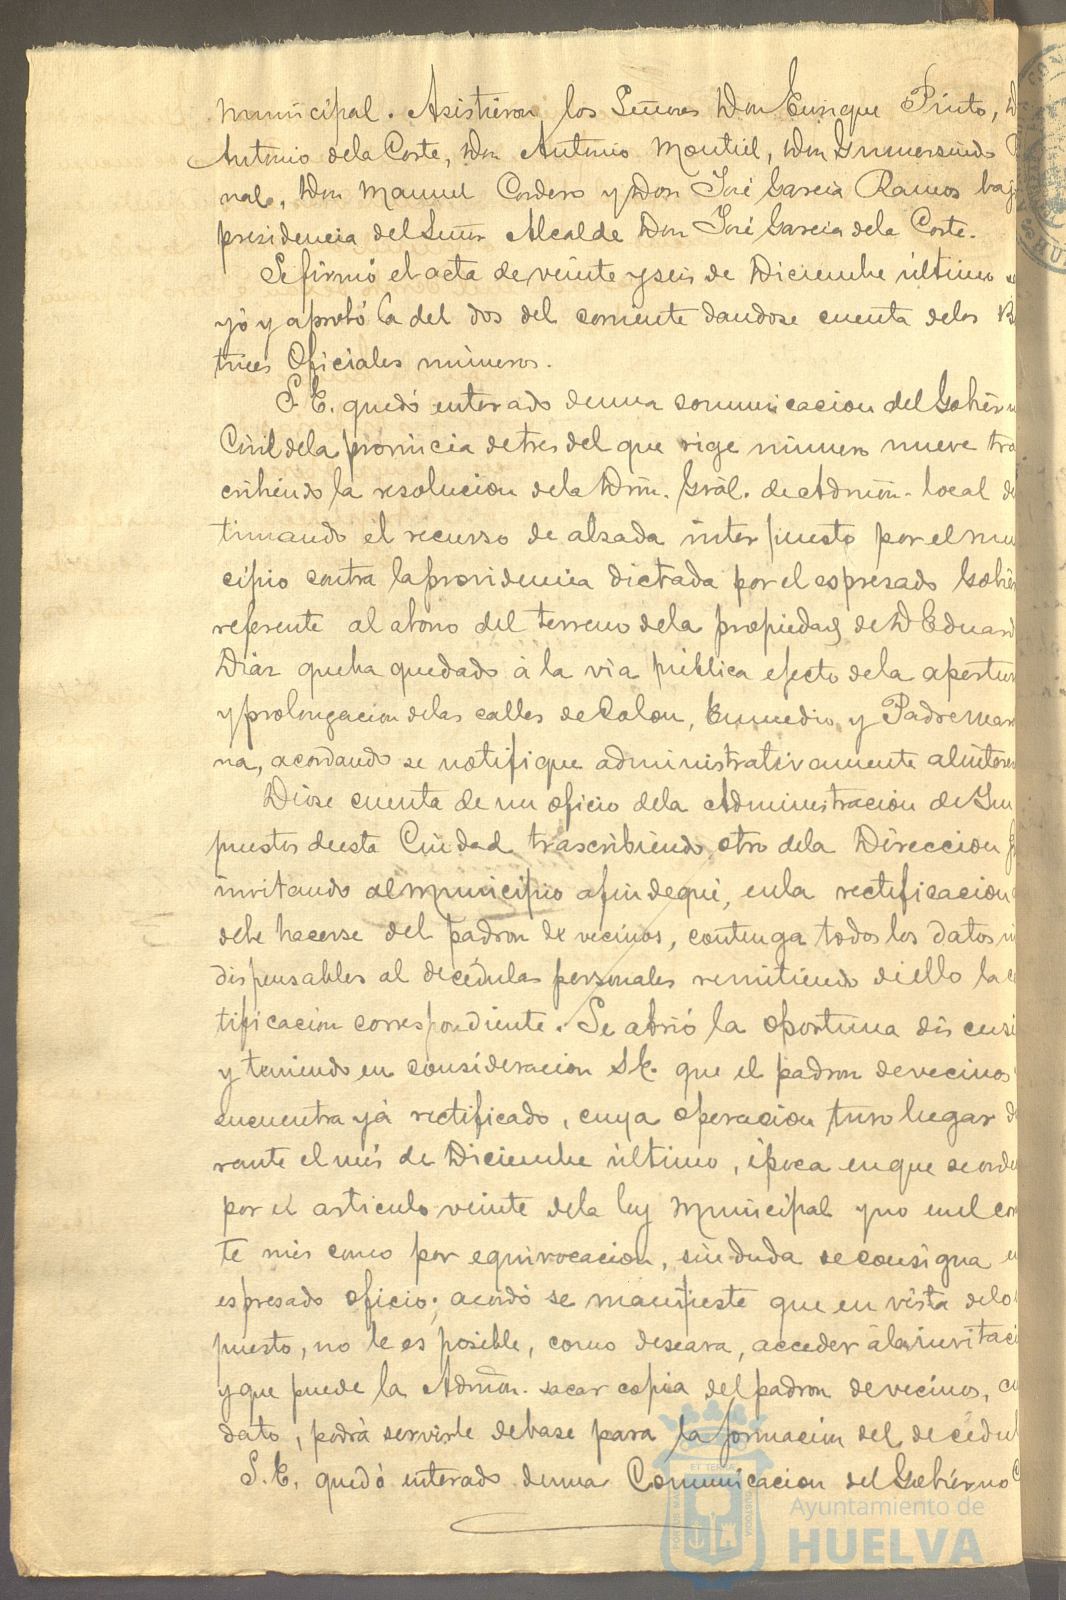 municipal. Asistieron los Señores Don Enrique Pinto, D
Antonio de la Corte, Don Antonio Montiel, Don Gumersindo
nale, Don Manuel Cordero y Don José Garcia Ramos baj
presidencia del Señor Alcalde Don José Garcia de la Corte.
Se firmó el acta de veinte y seis de Diciembre último
yó y aprobó la del dos del corriente dandose cuenta de los B
tines Oficiales números.
S. E. quedó enterado de una comunicacion del Gobiern
Civil de la provincia de tres del que rige número nueve tra
cribiendo la resolucion de la Drón. Gral. de Admón. local de
timando el recurso de alzada interpuesto por el mu
cipio contra la providencia dictada por el espresado Gobier
referente al abono del terreno de la propiedad de D Eduard
Diaz que ha quedado á la via pública efecto de la apertur
y prolongacion de las calles de Colon, Enmedio y Padre Mar
na, acordando se notifique administrativamente al interes
Diose cuenta de un oficio de la Administracion de Im
puestos de esta Ciudad trascribiendo otro de la Direccion
invitando al municipio a fin de que, en la rectificacion
debe hacerse del padron de vecinos, contenga todos los datos in
dispensables al de cédulas personales remitiendo de ello la c
tificacion correspondiente. Se abrió la oportuna discusi
y teniendo en consideracion S.E. que el padron de vecinos
encuentra yá rectificado, cuya operacion tuvo lugar d
rante el mes de Diciembre último, época en que se orde
por el articulo veinte de la ley Municipal y no en el cor
te mes como por equivocacion, sin duda se consigna e
espresado oficio; acordó se manifieste que en vista de lo
puesto, no le es posible, como deseara, acceder á la invitaci
y que puede la Admón. sacar copia del padron de vecinos, cu
dato, podrá servirle de base para la formacion del de cédul
S. E. quedó enterado de una Comunicacion del Gobierno C
Ayuntamiento de
HUELVA